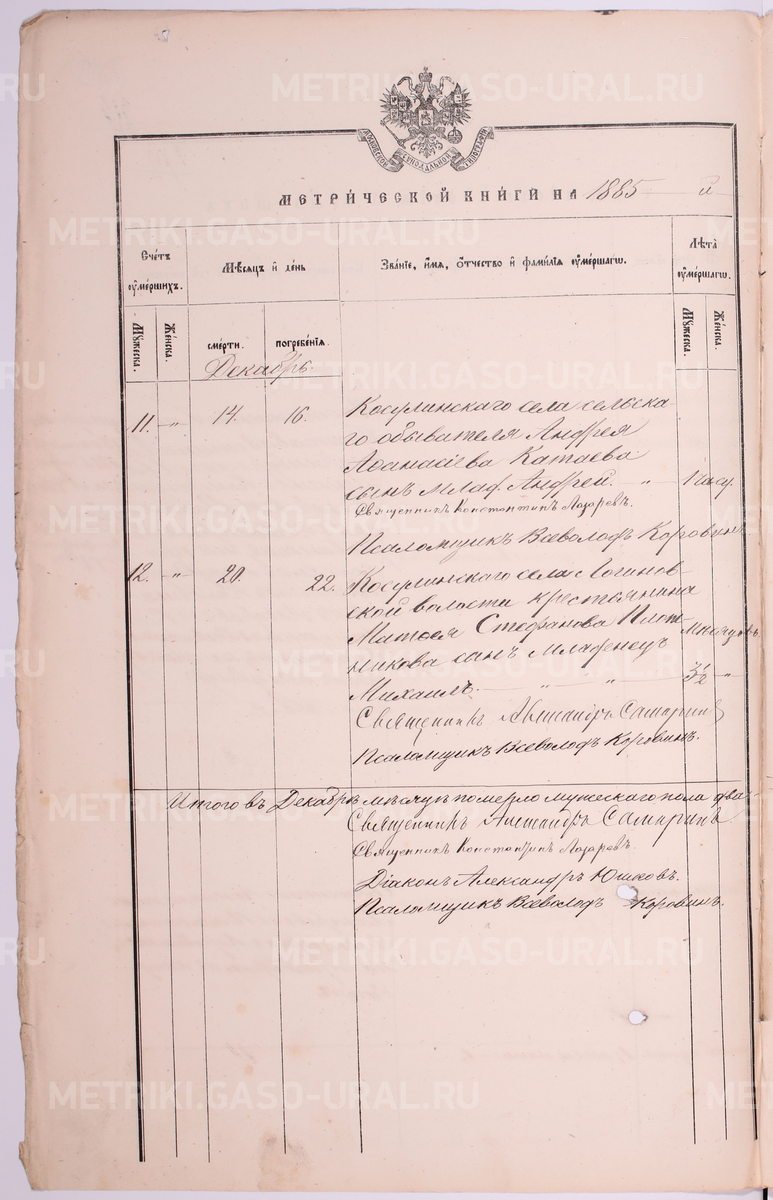 МЕТРИЧЕСКОЙ КНИГИ НА 1885 й
Счетъ умершихъ.
Мужеска.
Женска.
Мѣсяцъ и день
смерти.
погребенія.
Званіе, имя, отчество и фамилія умершагѡ.
Лѣта умершагѡ.
Мужеска.
Женска.
Декабрь.
11. „ 14. 16. Косулинскаго села сельска-
го обывателя Андрея
Аѳанасіева Катаева
сынъ млад. Андрей. „ 1 часу.
Священникъ Константинъ Лазаревъ.
Псаломщикъ Всеволодъ Коровинъ
12. „ 20. 22. Косулинскаго села Логинов-
ской волости крестьянина
Матѳея Стефанова Плот-
никова сынъ младенецъ
Михаилъ. „ „ 3½ „
Священникъ Александръ Самаринъ
Псаломщикъ Всеволодъ Коровинъ.
Итого въ Декабрѣ мѣсяцѣ померло мужескаго пола два
Священникъ Александръ Самаринъ
Священникъ Константинъ Лазаревъ.
Діаконъ Александръ Юшковъ.
Псаломщикъ Всеволодъ Коровинъ.
METRIKI.GASO-URAL.RU